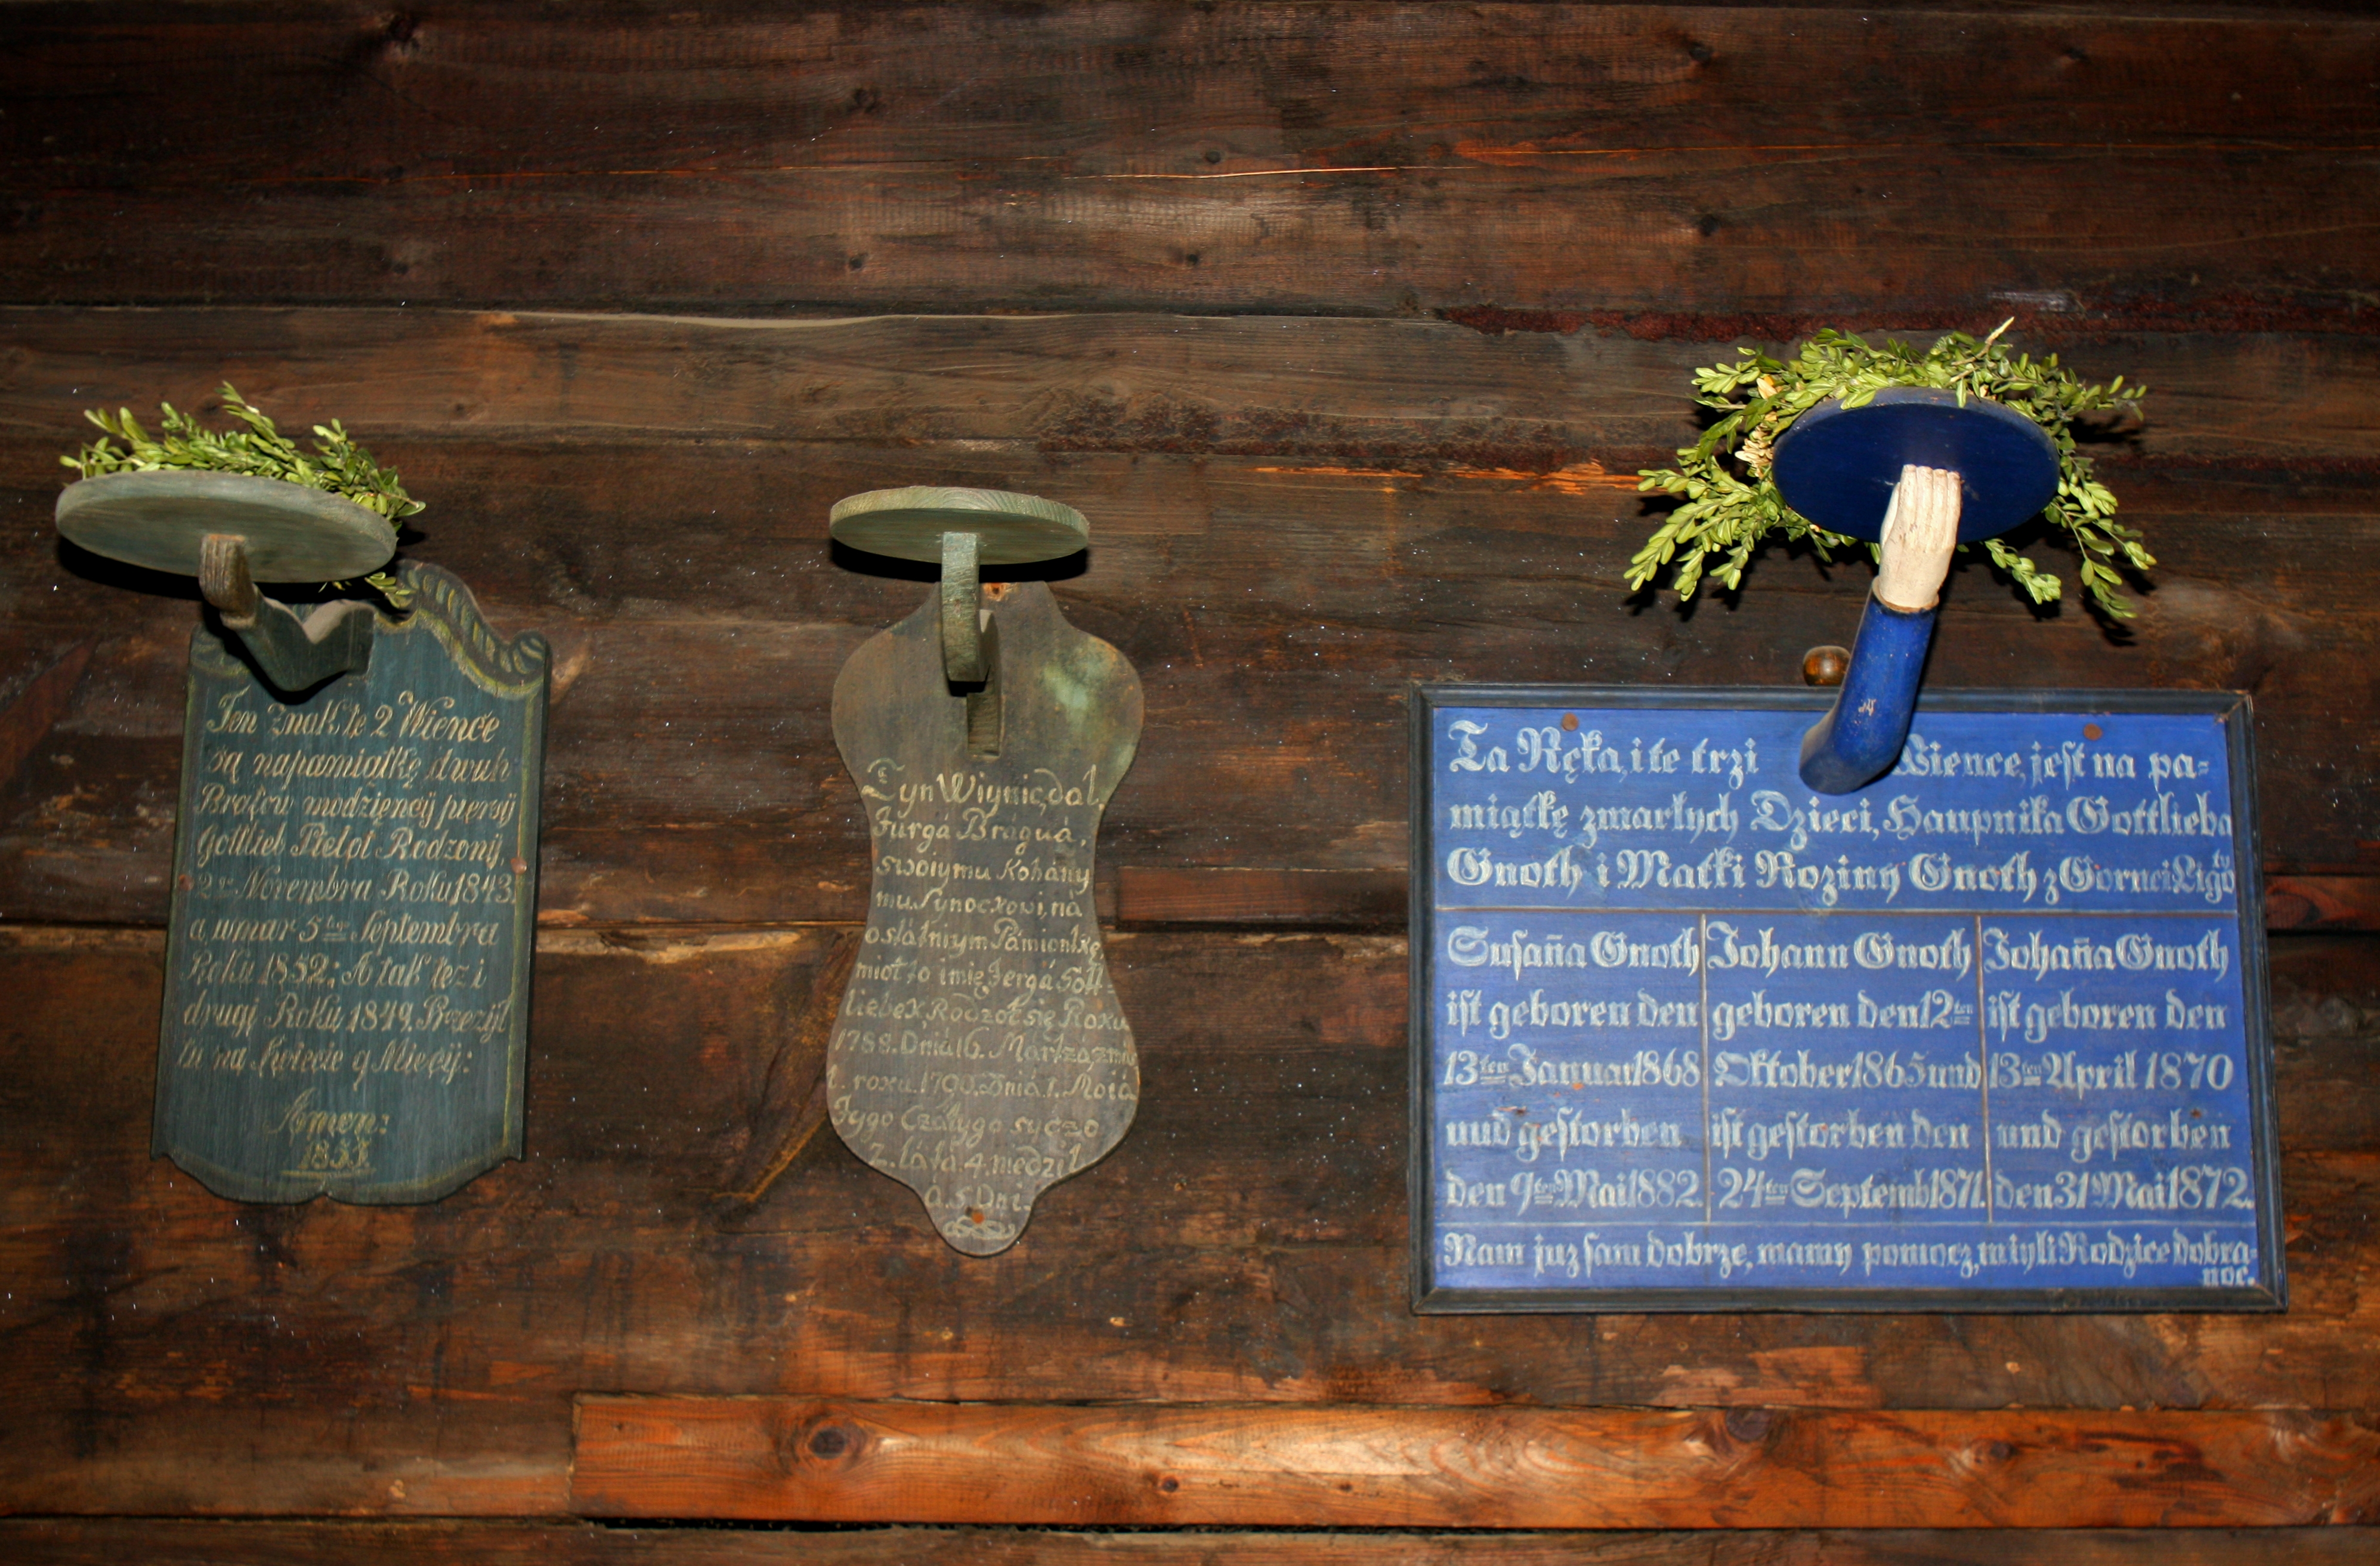 Ten Znak te 2 Wience
są napamiątkę dwuh
Braćiw modzięncij piersij
Gottlieb Pielot Rodzonij
2ten Novembra Roku 1843
a, umar 5ten Septembra
Roku 1852: A tak też i
drugi Roku 1849. Przeżijł
tu na Świecie 9 Mięcij:
Amen:
Tyn Wiyniec, dał,
Jurgá Bráguá,
swoiymu Kohány
mu Synoczkowi, ná
ostátniym Pámiontkę
miáł to imię Jergá Gott-
liebek, Rodzół się Roku
1788. Dniá 16. Martzá, zmar
ł. roku. 1790. Dniá 1. Moiá
Jygo Czáłygo syczo
2. látá. 4. niedzil
a. 5. Dni.
Ta Ręka, i te trzi Wience, jest na pa=
miątkę zmarłych Dzieci, Haupnika Gottlieba
Gnoth i Matki Roziny Gnoth z Gornei Ligo
ty
Susan̄a Gnoth
ist geboren den
13ten Januar 1868
und gestorben
den 9ten Mai 1882.
Johann Gnoth
geboren den 12ten
Oktober 1865 und
ist gestorben den
24ten Septemb 1871.
Johan̄a Gnoth
ist geboren den
13ten April 1870
und gestorben
den 31 Mai 1872.
Nam juz sam dobrze, mamy pomocz, miyli Rodzice dobra-
noc.